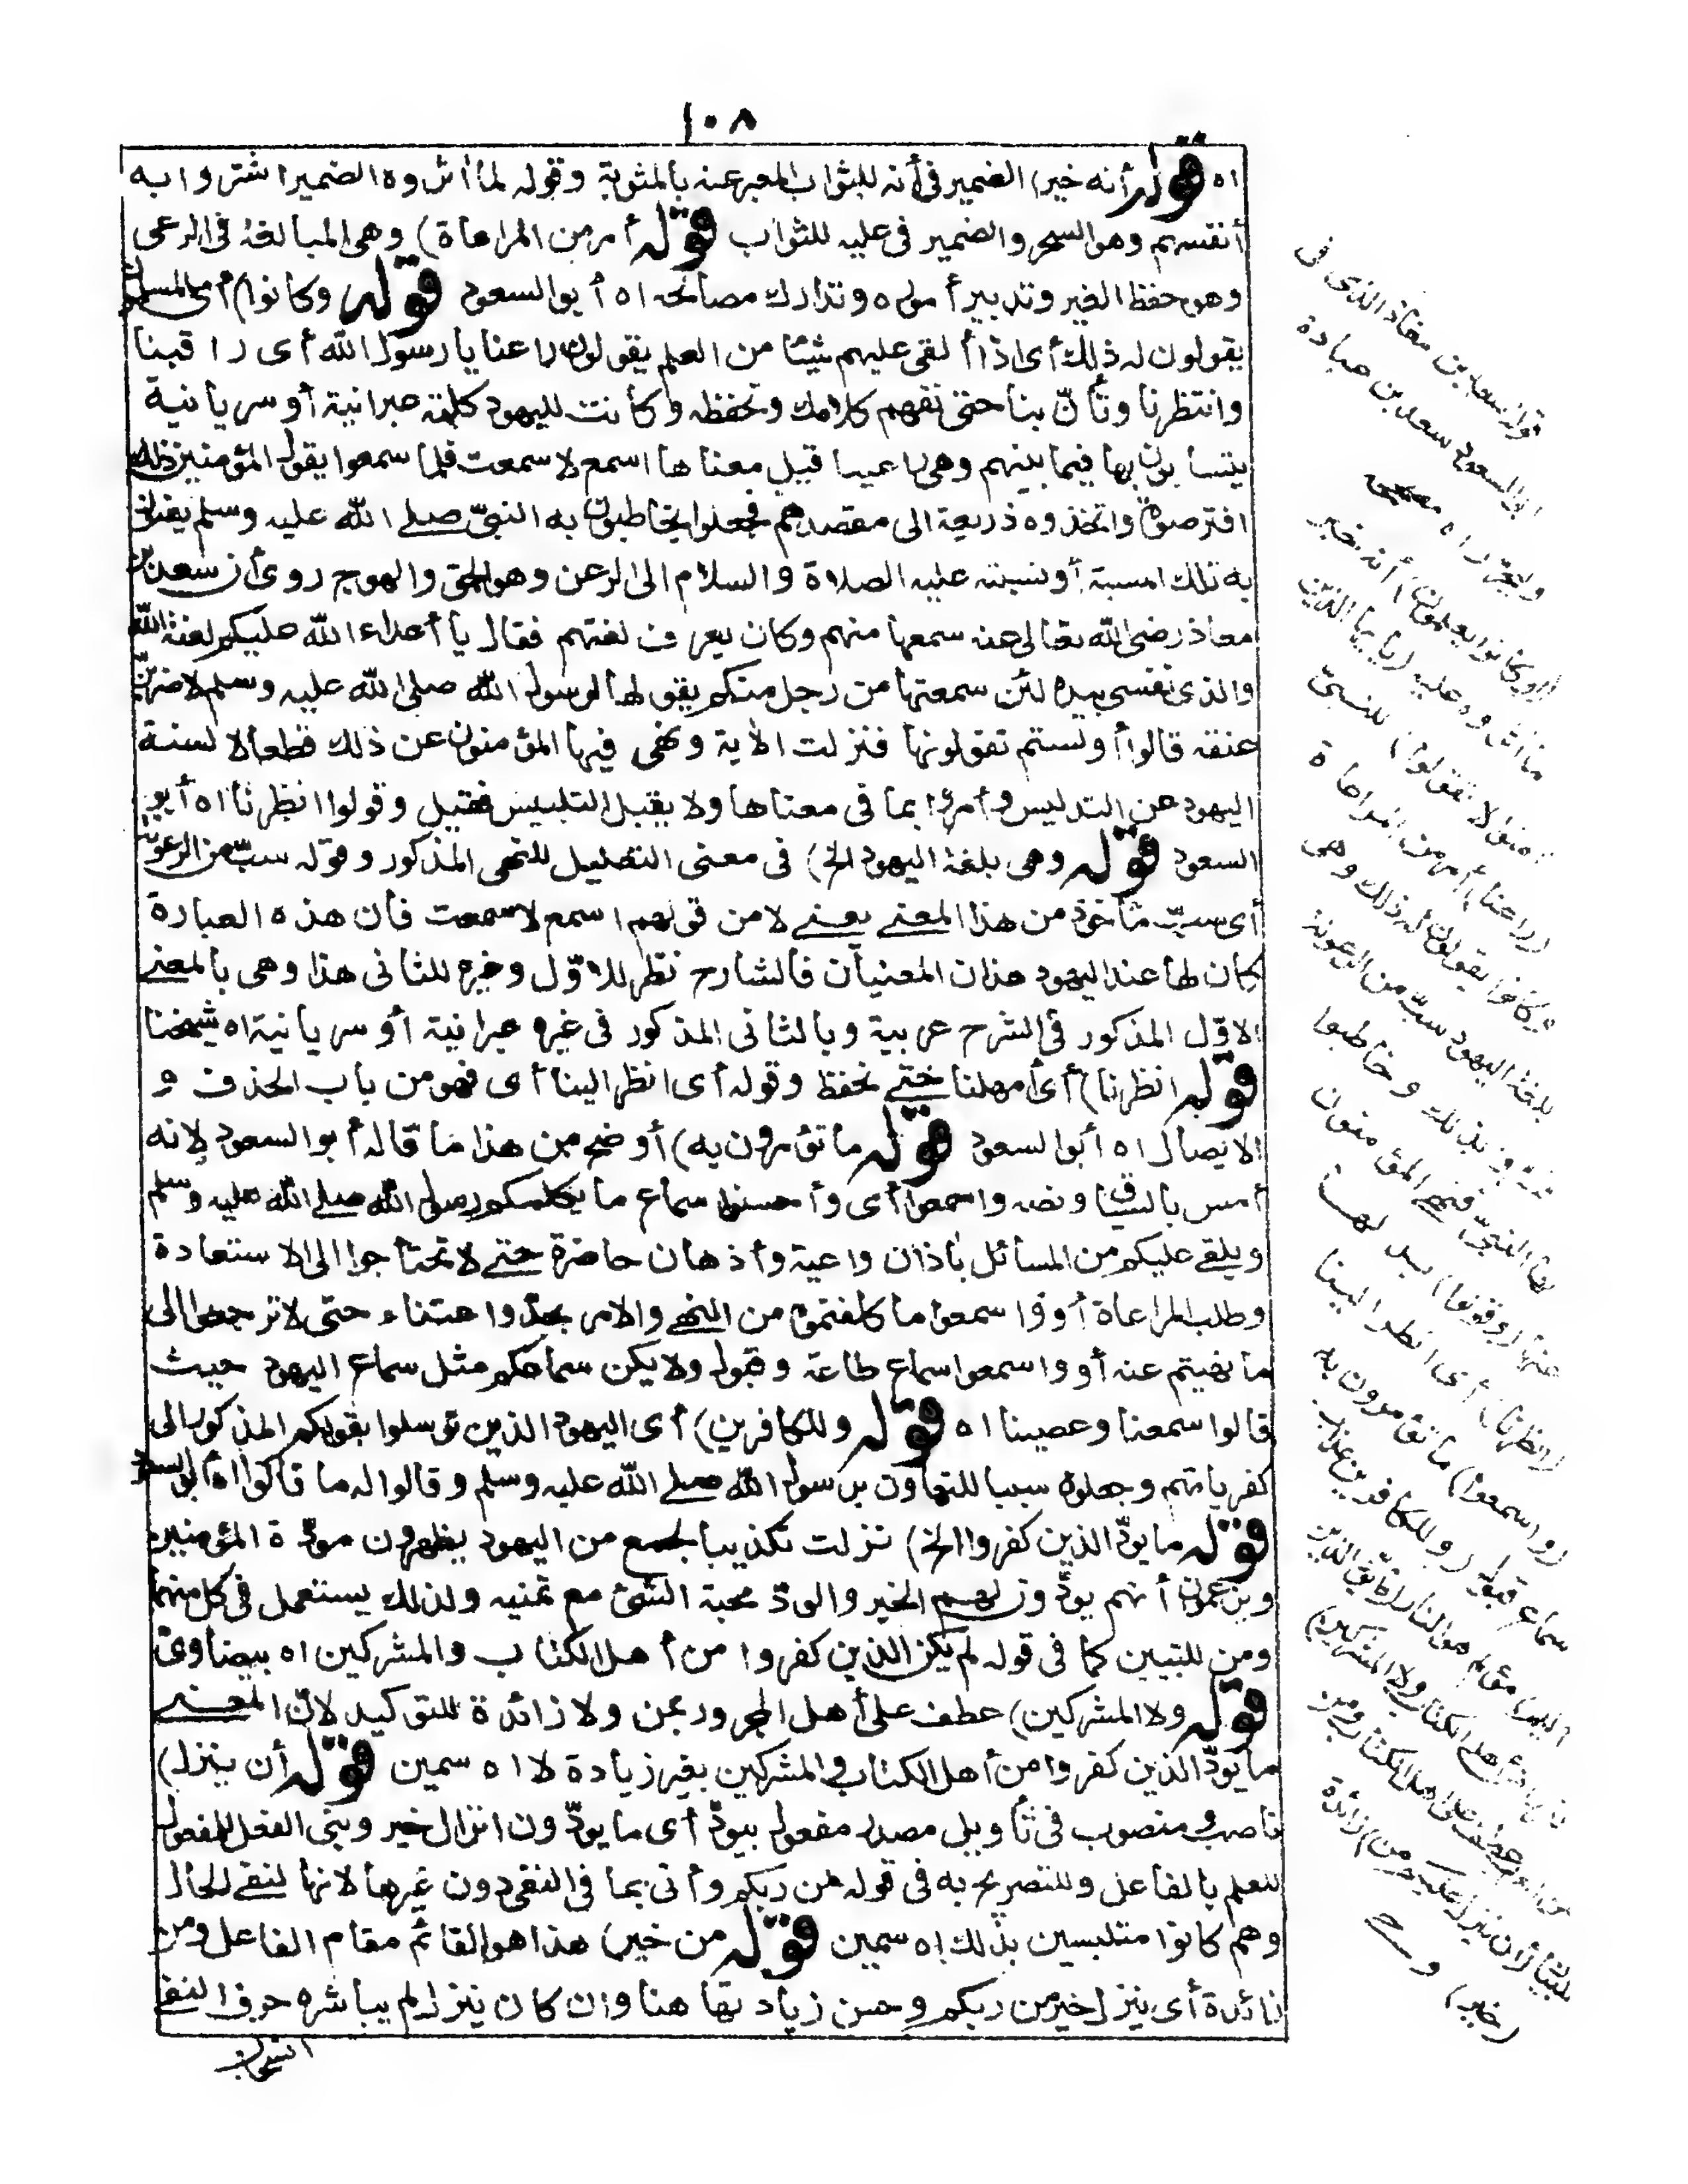 ١٠٨
اه قوله أنه خير) الضمير فى أنه للثواب المعبر عنه بالمثوبة وقوله لما آثروه الضمير اشتروا به
أنفسهم وهو السحر والضمير فى عليه للثواب قوله أمر من المراعاة) وهى المبالغة فى الرعى
وهو حفظ الغير وتدبير أموره وتدارك مصالحه اه أبو السعود قوله وكانوا) أى المسلمون
يقولون له ذلك أى اذا ألقى عليهم شيئا من العلم يقولون راعنا يا رسول الله أى راقبنا
وانتظرنا وتأنّ بنا حتى نفهم كلامك ونحفظه وكانت لليهود كلمة عبرانية أو سريانية
يتسابون بها فيما بينهم وهى راعينا قيل معناها اسمع لا سمعت فلما سمعوا بقول المؤمنين ذلك
افترصوه واتخذوه ذريعة الى مقصدهم فجعلوا يخاطبون به النبىّ صلى الله عليه وسلم يعنون
به تلك المسبة أو نسبته عليه الصلاة والسلام الى الرعن وهو الحمق والهوج روى أن سعد بن
معاذ رضى الله تعالى عنه سمعها منهم وكان يعرف لغتهم فقال يا أعداء الله عليكم لعنة الله
والذى نفسى بيده لئن سمعتها من رجل منكم يقولها لرسول الله صلى الله عليه وسلم لاضربنّ
عنقه قالوا أو لستم تقولونها فنزلت الآية ونهى فيها المؤمنون عن ذلك قطعا لالسنة
اليهود عن التدليس وأمروا بما فى معناها ولا يقبل التلبيس فقيل وقولوا انظرنا اه أبو
السعود قوله وهى بلغة اليهود الخ) فى معنى التعليل للنهى المذكور وقوله سبّ من الرعونة
أى سبّ مأخوذ من هذا المعنى يعنى لا من قولهم اسمع لا سمعت فان هذه العبارة
كان لها عند اليهود هذان المعنيان فالشارح نظر للاوّل وغيره للثانى هذا وهى بالمعنى
الاوّل المذكور فى الشرح عربية وبالثانى المذكور فى غيره عبرانية أو سريانية اه شيخنا
قوله انظرنا) أى أمهلنا حتى نحفظ وقوله أى انظر الينا أى فهو من باب الحذف و
الايصال اه أبو السعود قوله ما تؤمرون به) أوضح من هذا ما قاله أبو السعود لانه
أمس بالسياق ونصه واسمعوا أى وأحسنوا سماع ما يكلمكم رسول الله صلى الله عليه وسلم
ويلقى عليكم من المسائل بآذان واعية وأذهان حاضرة حتى لا تحتاجوا الى الاستعادة
وطلب المراعاة أو واسمعوا ما كلفتموه من النهى والامر بجدّ واعتناء حتى لا ترجعوا الى
ما نهيتم عنه أو واسمعوا سماع طاعة وقبول ولا يكن سماعكم مثل سماع اليهود حيث
قالوا سمعنا وعصينا اه قوله وللكافرين) أى اليهود الذين توسلوا بقولكم المذكور الى
كفرياتهم وجعلوه سببا للتهاون برسول الله صلى الله عليه وسلم وقالوا له ما قالوا اه أبو السعود
قوله ما يودّ الذين كفروا الخ) نزلت تكذيبا لجمع من اليهود يظهرون مودّة المؤمنين
ويزعمون أنهم يودّون لهم الخير والودّ محبة الشئ مع تمنيه ولذلك يستعمل فى كل منهما
ومن للتبيين كما فى قوله لم يكن الذين كفروا من أهل الكتاب والمشركين اه بيضاوى
قوله ولا المشركين) عطف على أهل المجرور بمن ولا زائدة للتوكيد لانّ المعنى
ما يودّ الذين كفروا من أهل الكتاب والمشركين بغير زيادة لا اه سمين قوله أن ينزل)
ناصب ومنصوب فى تأويل مصدر مفعول بيودّ أى ما يودّون انزال خير وبنى الفعل للمفعول
للعلم بالفاعل وللتصريح به فى قوله من ربكم وأتى بما فى النفى دون غيرها لانها لنفى الحال
وهم كانوا متلبسين بذلك اه سمين قوله من خير) هذا هو القائم مقام الفاعل ومن
زائدة أى ينزل خير من ربكم وحسن زيادتها هنا وان كان ينزل لم يباشره حرف النفى
قوله سعد بن معاذ الذى فى
ابو السعود سعد بن عبادة
وليحرر اه
(لو كانوا يعلمون) أنه خير
ما آثروه عليه (يا أيها الذين
آمنوا لا تقولوا) للنبىّ
(راعنا) أمر من المراعاة
وكانوا يقولون له ذلك وهى
بلغة اليهود سبّ من الرعونة
بذلك وخاطبوا
بها النبىّ فنهى المؤمنون
عنها (وقولوا) بدلها
(انظرنا) أى انظر الينا
(واسمعوا) ما تؤمرون به
سماع قبول (وللكافرين عذاب
اليم) مؤلم هو النار (ما يودّ الذين
كفروا من أهل الكتاب ولا المشركين)
من العرب عطف على اهل الكتاب ومن
للبيان (أن ينزل عليكم من) زائدة
(خير)